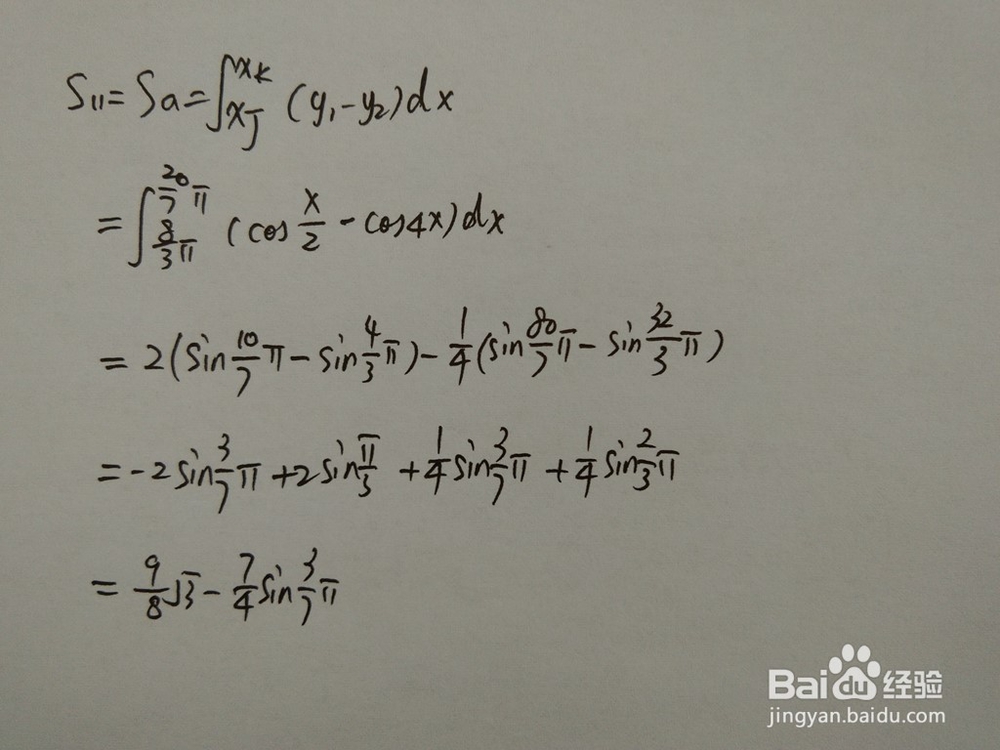 S₁₁=Sa=∫_{x_J}^{x_K} (y₁-y₂)dx
=∫_{8/3 π}^{20/7 π} (cos x/2 - cos4x)dx
= 2(sin 10/7 π - sin 4/3 π) - 1/4 (sin 80/7 π - sin 32/3 π)
= -2 sin 3/7 π + 2 sin π/3 + 1/4 sin 3/7 π + 1/4 sin 2/3 π
= 9/8 √3 - 7/4 sin 3/7 π
Baidu 经验
jingyan.baidu.com